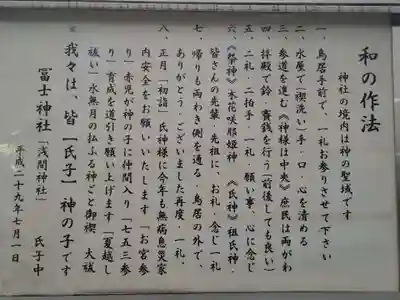 和の作法
神社の境内は神の聖域です
一、鳥居手前で、一礼お参りさせて下さい
二、水屋で「禊洗い」手・口・心を清める
三、参道を進む《神様は中央》庶民は両がわ
四、拝殿で鈴・賽銭を行う(前後しても良い)
五、二礼・二拍手・一礼・願い事・心に念じ
六、《祭神》木花咲耶姫神 《氏神》祖氏神・
皆さんの先輩、先祖に、お札・念じ一礼
七、帰りも両わき側を通る、鳥居の外で、
ありがとう・ございました再度・一礼、
八、正月「初詣」氏神様に今年も無病息災家
内安全をお願いいたします「お宮参
り」赤児が神の子の仲間入り「七五三参
り」育成を道引き願い上げます「夏越し
祓い」水無月の払ふる神ごと御禊 大祓
◎我々は、皆【氏子】神の子です
冨士神社「浅間神社」 氏子中
平成二十九年七月一日